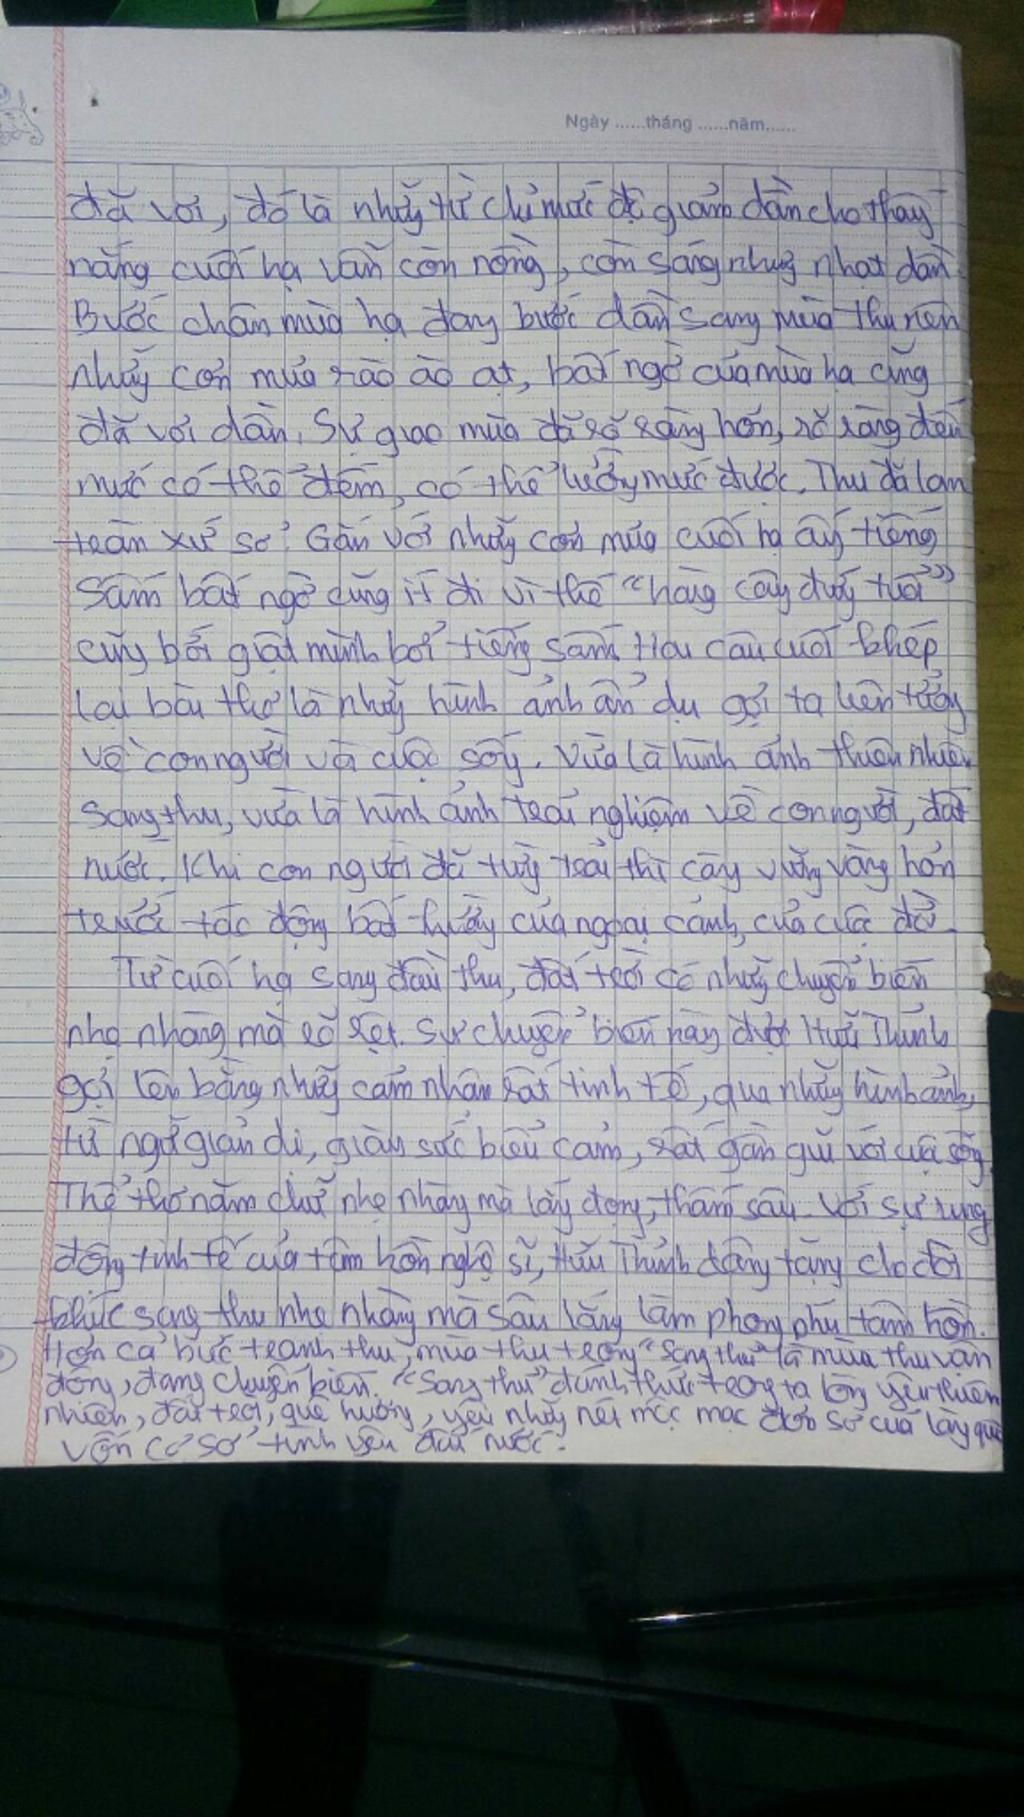 Ngày ......tháng ......năm......
đã vơi, đó là những từ chỉ mức độ giảm dần cho thấy
nắng cuối hạ vẫn còn nồng, còn sáng nhưng nhạt dần.
Bước chân mùa hạ đang bước dần sang mùa thu nên
những cơn mưa rào ào ạt, bất ngờ của mùa hạ cũng
đã vơi dần. Sự giao mùa đã rõ ràng hơn, rõ ràng đến
mức có thể đếm, có thể lường mức được. Thu đã lan
tràn xứ sở. Gắn với những cơn mưa cuối hạ ấy tiếng
Sấm bất ngờ cũng ít đi vì thế "hàng cây đứng tuổi"
cũng bớt giật mình bởi tiếng sấm. Hai câu cuối khép
lại bài thơ là những hình ảnh ẩn dụ gợi ta liên tưởng
về con người và cuộc sống. Vừa là hình ảnh thiên nhiên
sang thu, vừa là hình ảnh trải nghiệm về con người, đất
nước. Khi con người đã từng trải thì càng vững vàng hơn
trước tác động bất thường của ngoại cảnh, của cuộc đời.
Từ cuối hạ sang đầu thu, đất trời có những chuyển biến
nhẹ nhàng mà rõ rệt. Sự chuyển biến này được Hữu Thỉnh
gợi lên bằng những cảm nhận rất tinh tế, qua những hình ảnh,
từ ngữ giản dị, giàu sức biểu cảm, rất gần gũi với cuộc sống.
Thể thơ năm chữ nhẹ nhàng mà lắng đọng, thấm sâu. Với sự rung
động tinh tế của tâm hồn nghệ sĩ, Hữu Thỉnh tặng cho đời
khúc sang thu nhẹ nhàng mà sâu lắng làm phong phú tâm hồn.
Hơn cả bức tranh thu, mùa thu trong "Sang thu" là mùa thu vận
động, đang chuyển biến. "Sang thu" đánh thức trong ta lòng yêu thiên
nhiên, đất trời, quê hương, yêu những nét mộc mạc đơn sơ của làng quê
vốn cơ sở tình yêu đất nước.